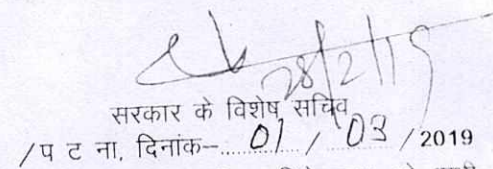 28/2/19
सरकार के विशेष सचिव
/प ट ना, दिनांक-..... 01 / 03 / 2019